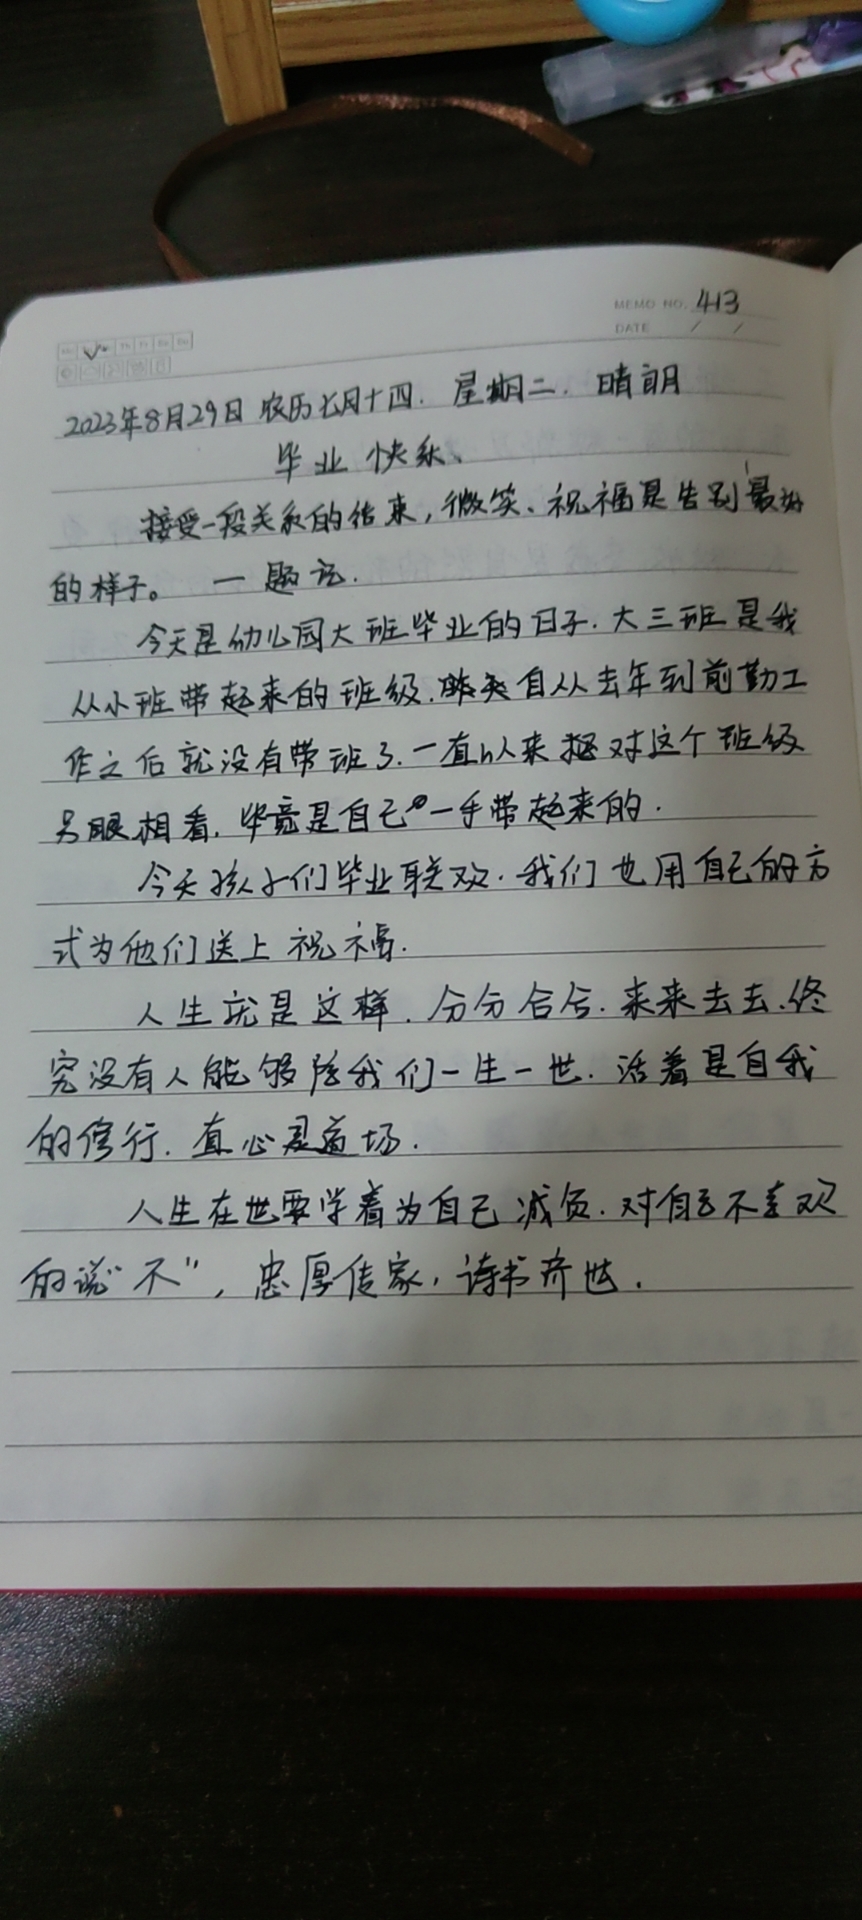 MEMO NO. 413
DATE / /
2023年8月29日 农历七月十四. 星期二. 晴朗
毕业快乐、
接受一段关系的结束,微笑、祝福是告别最好
的样子。 一 题记.
今天是幼儿园大班毕业的日子.大三班是我
从小班带起来的班级.自从去年到前勤工
作之后就没有带班了.一直以来对这个班级
另眼相看.毕竟是自己一手带起来的.
今天孩子们毕业联欢.我们也用自己的方
式为他们送上祝福.
人生就是这样.分分合合.来来去去.终
究没有人能够陪我们一生一世.活着是自我
的修行.直心是道场.
人生在世要学着为自己减负.对自己不喜欢
的说“不”,忠厚传家,诗书齐世.